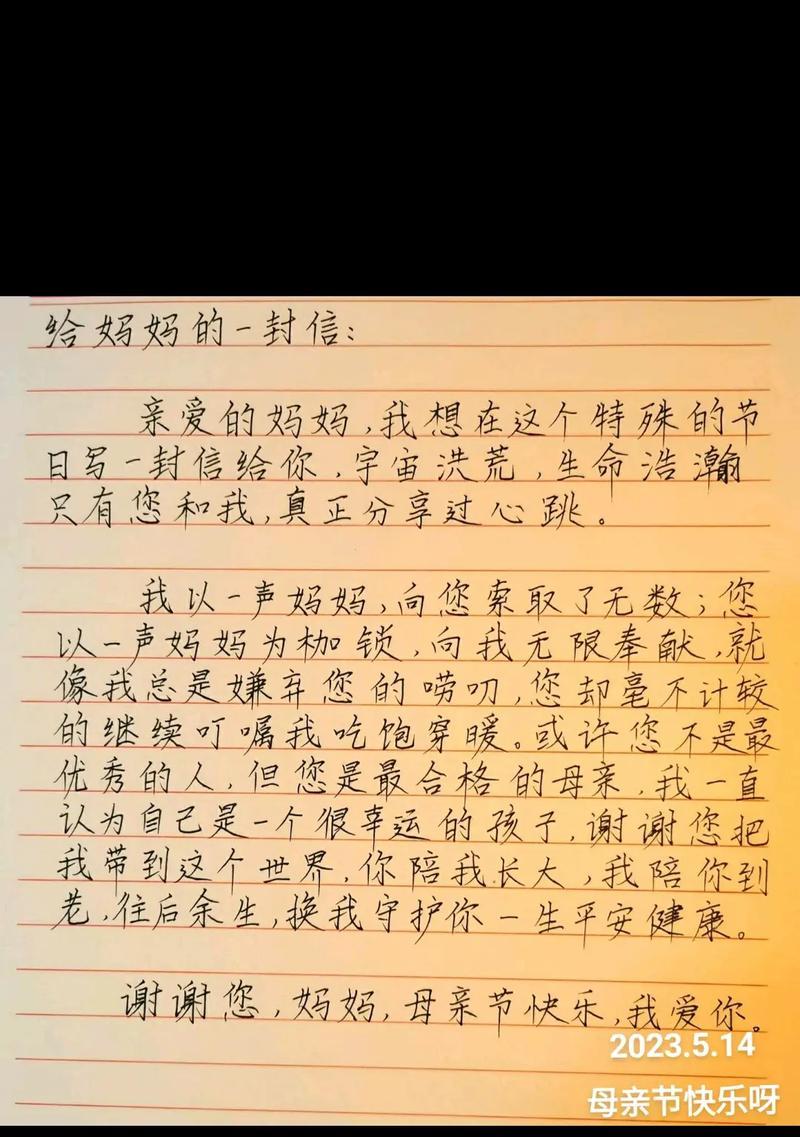 给妈妈的一封信:
亲爱的妈妈,我想在这个特殊的节
日写一封信给你,宇宙洪荒,生命浩瀚
只有您和我,真正分享过心跳。
我以一声妈妈,向您索取了无数;您
以一声妈妈为枷锁,向我无限奉献,就
像我总是嫌弃您的唠叨,您却毫不计较
的继续叮嘱我吃饱穿暖。或许您不是最
优秀的人,但您是最合格的母亲,我一直
认为自己是一个很幸运的孩子,谢谢您把
我带到这个世界,你陪我长大,我陪你到
老,往后余生,换我守护你一生平安健康。
谢谢您,妈妈,母亲节快乐,我爱你。
2023.5.14
母亲节快乐呀